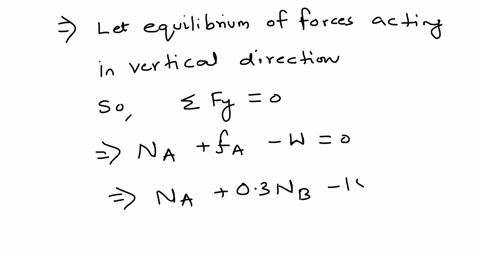 ⇒ Let equilibrium of forces acting
in vertical direction
So, Σ Fy = 0
⇒ NA + fA - W = 0
⇒ NA + 0.3NB -